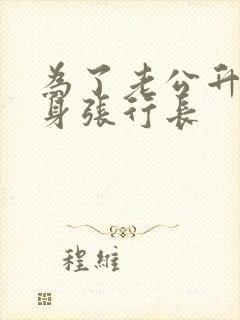 為了老公升
身張行長
程維